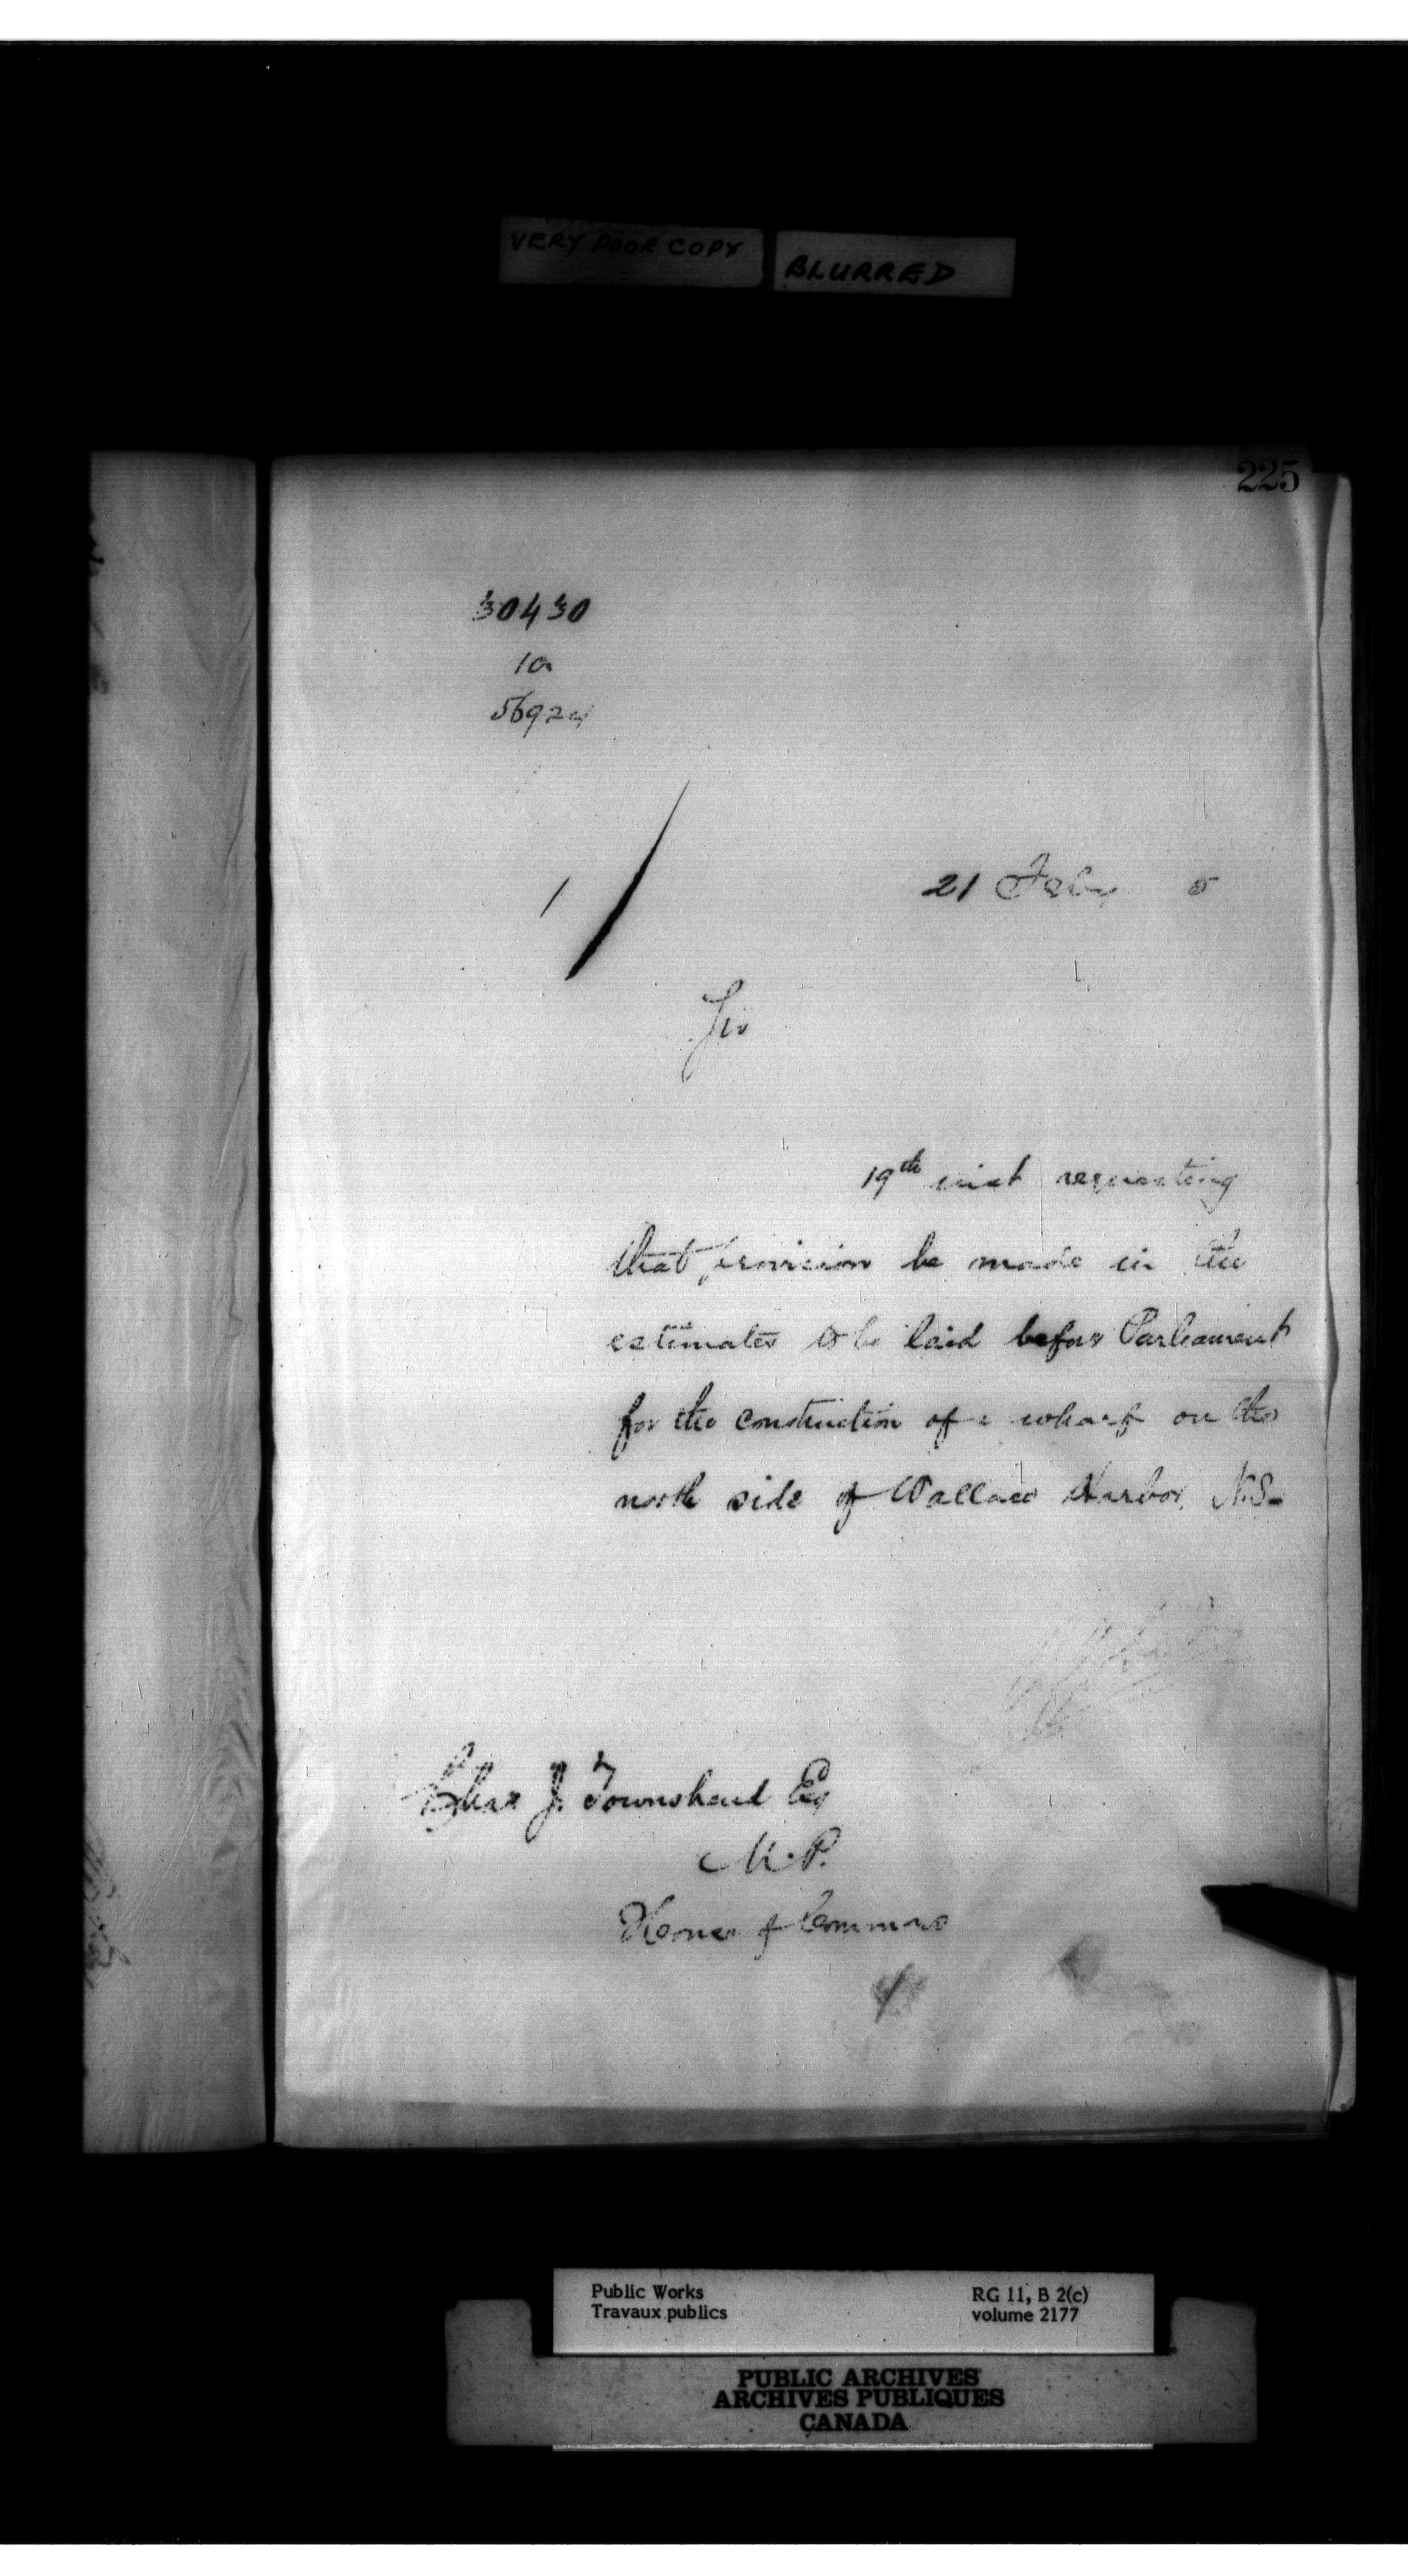 VERY POOR COPY
BLURRED
225
30430
1a
56924
21 Feby 5
Sir
19th inst requesting
that provision be made in the
estimates to be laid before Parliament
for the construction of a wharf on the
north side of Wallace Harbor N.S-
Chas J. Townshend Eq
M.P.
House of Commons
Public Works
Travaux publics
RG 11, B 2(c)
volume 2177
PUBLIC ARCHIVES
ARCHIVES PUBLIQUES
CANADA